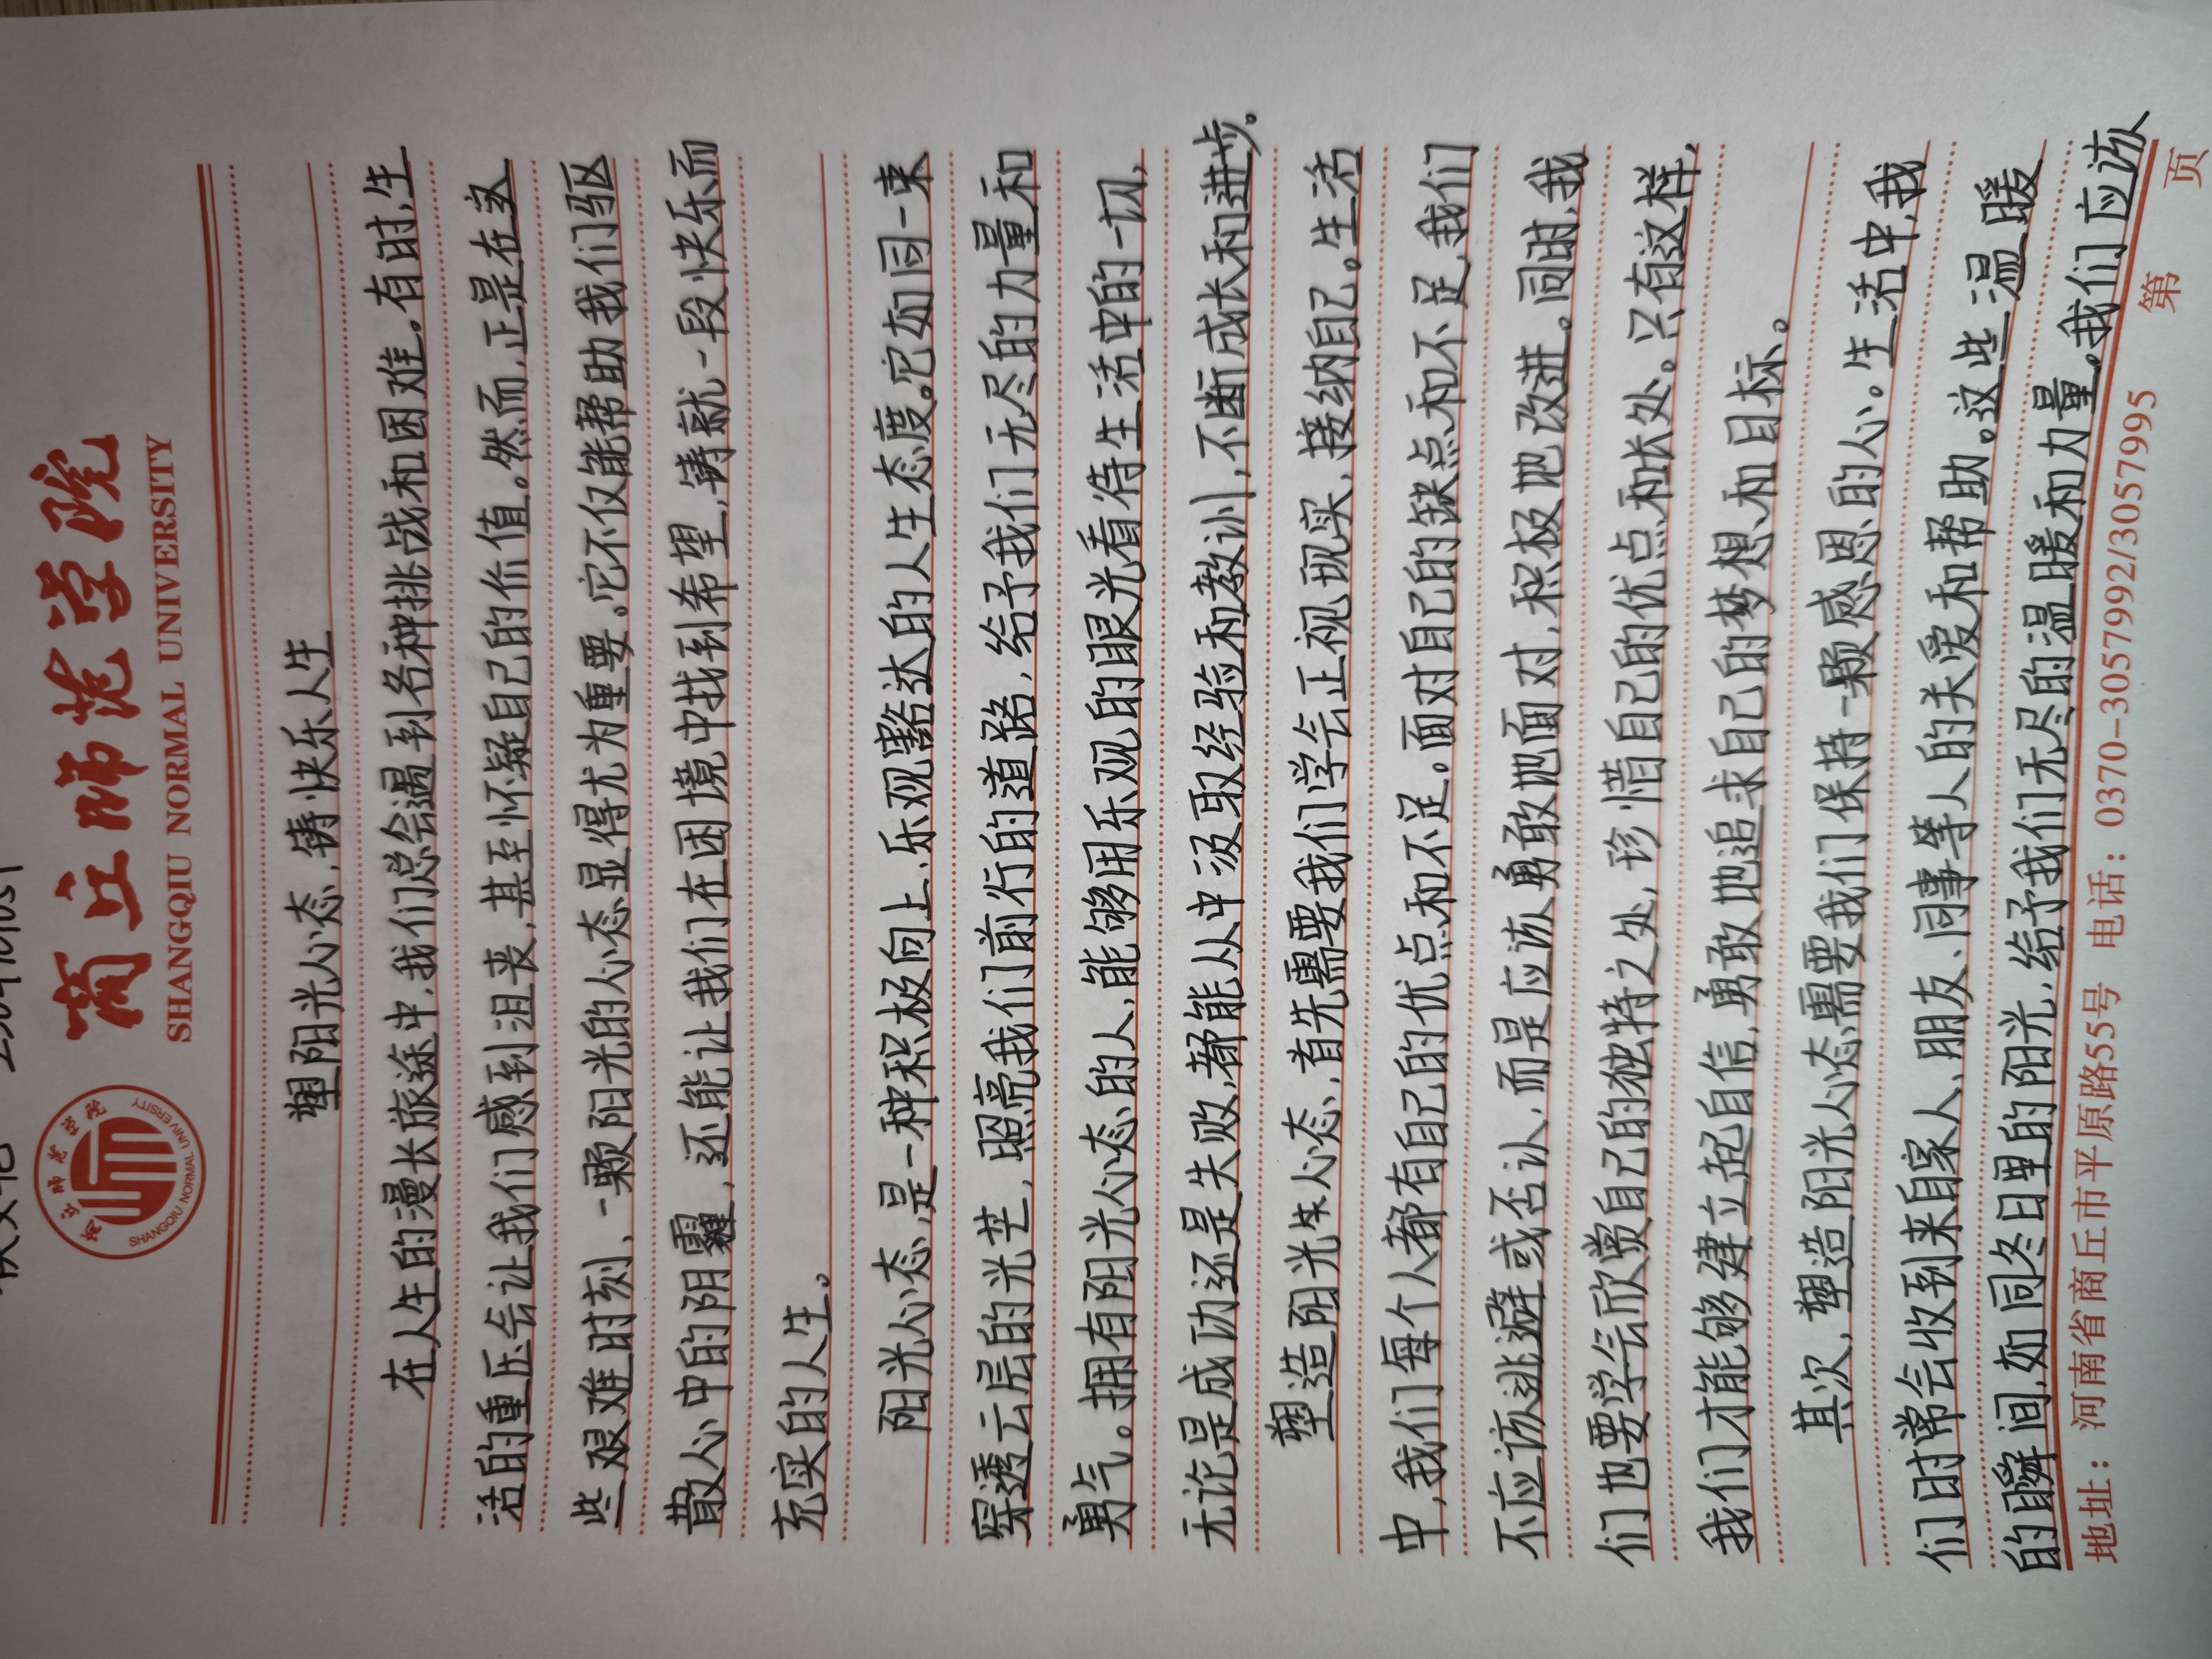 商丘师范学院
SHANGQIU NORMAL UNIVERSITY
塑阳光心态,铸快乐人生
在人生的漫长旅途中,我们总会遇到各种挑战和困难。有时,生
活的重压会让我们感到沮丧,甚至怀疑自己的价值。然而,正是在这
些艰难时刻,一颗阳光的心态显得尤为重要。它不仅能帮助我们驱
散心中的阴霾,还能让我们在困境中找到希望,铸就一段快乐而
充实的人生。
阳光心态,是一种积极向上、乐观豁达的人生态度。它如同一束
穿透云层的光芒,照亮我们前行的道路,给予我们无尽的力量和
勇气。拥有阳光心态的人,能够用乐观的眼光看待生活中的一切,
无论是成功还是失败,都能从中汲取经验和教训,不断成长和进步。
塑造阳光心态,首先需要我们学会正视现实,接纳自己。生活
中,我们每个人都有自己的优点和不足。面对自己的缺点和不足,我们
不应该逃避或否认,而是应该勇敢地面对,积极地改进。同时,我
们也要学会欣赏自己的独特之处,珍惜自己的优点和长处。只有这样,
我们才能够建立起自信,勇敢地追求自己的梦想和目标。
其次,塑造阳光心态需要我们保持一颗感恩的心。生活中,我
们时常会收到来自家人、朋友、同事等人的关爱和帮助。这些温暖
的瞬间,如同冬日里的阳光,给予我们无尽的温暖和力量。我们应该
地址:河南省商丘市平原路55号 电话:0370-3057992/3057995 第 页